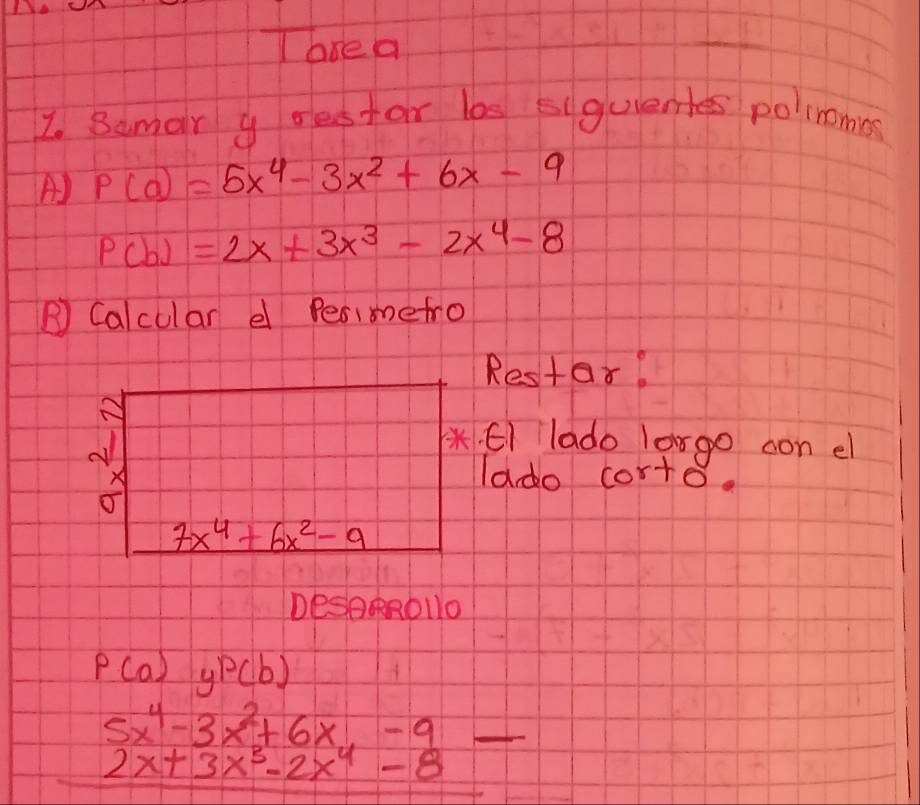 Tarea
1. Sumar y restar los siguientes polinomios
A) P(a) = 5x⁴ - 3x² + 6x - 9
P(b) = 2x + 3x³ - 2x⁴ - 8
B) Calcular el Perimetro
Restar:
* El lado largo con el
lado corto.
9x² - 12
7x⁴ + 6x² - 9
DESARROllO
P(a) y P(b)
5x⁴ - 3x² + 6x - 9 —
2x + 3x³ - 2x⁴ - 8